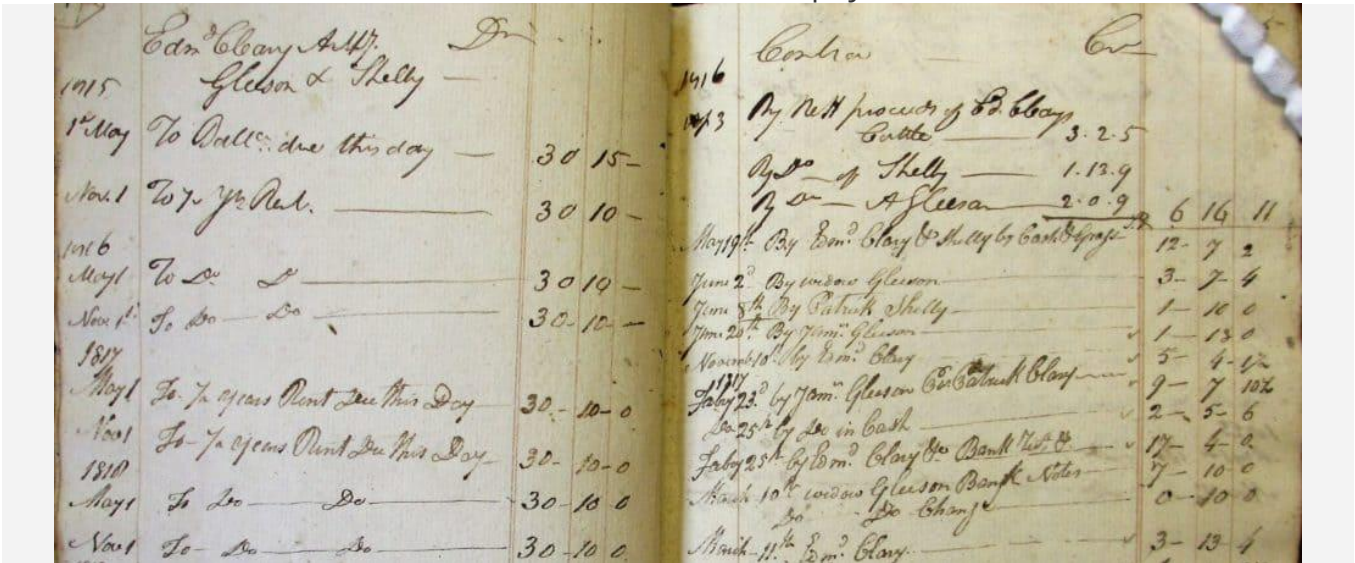 Edmd Cleary Dr
Gleeson & Shelly —
1815
1st May To Ballce due this day — 30 15 –
Nov. 1 To ½ Yrs Rent. — 30 10 –
1816
May 1 To Do Do — 30 10 –
Nov 1st To Do — Do — 30 - 10 –
1817
May 1 To ½ years Rent Due this Day 30 - 10 - 0
Nov 1 To ½ years Rent Due this Day 30 - 10 - 0
1818
May 1 To Do — Do — 30 - 10 0
Nov 1 To Do — Do — 30 - 10 0
Contra — Cr
1816
By Nett proceeds of Ed. Clearys
Cattle — 3. 2. 5
By Do — of Shelly — 1. 13. 9
By Do — A Gleeson — 2. 0. 9 6 16 11
May 19th By Edmd Clary & Shelly by Cash & 12 - 7 2
June 2d By widow Gleeson — 3 - 7 - 4
June 8th By Patrick Shelly — 1 - 10 0
June 20th By Gleeson — 1 - 13 0
Novemb 10th by Edmd Clary 5 - 4 -
1817
Feby 23d by Gleeson Patrick Clary — 9 - 7 10½
Do 25th by Do in Cash — 2 - 5 - 6
Feby 25th by Edmd Clary Bank 17 - 4 - 0
March 10th widow Gleeson Bank Notes 7 - 10 0
Do Do Change 0 - 10 0
March - 11th Edmd Clary — 3 - 13 4